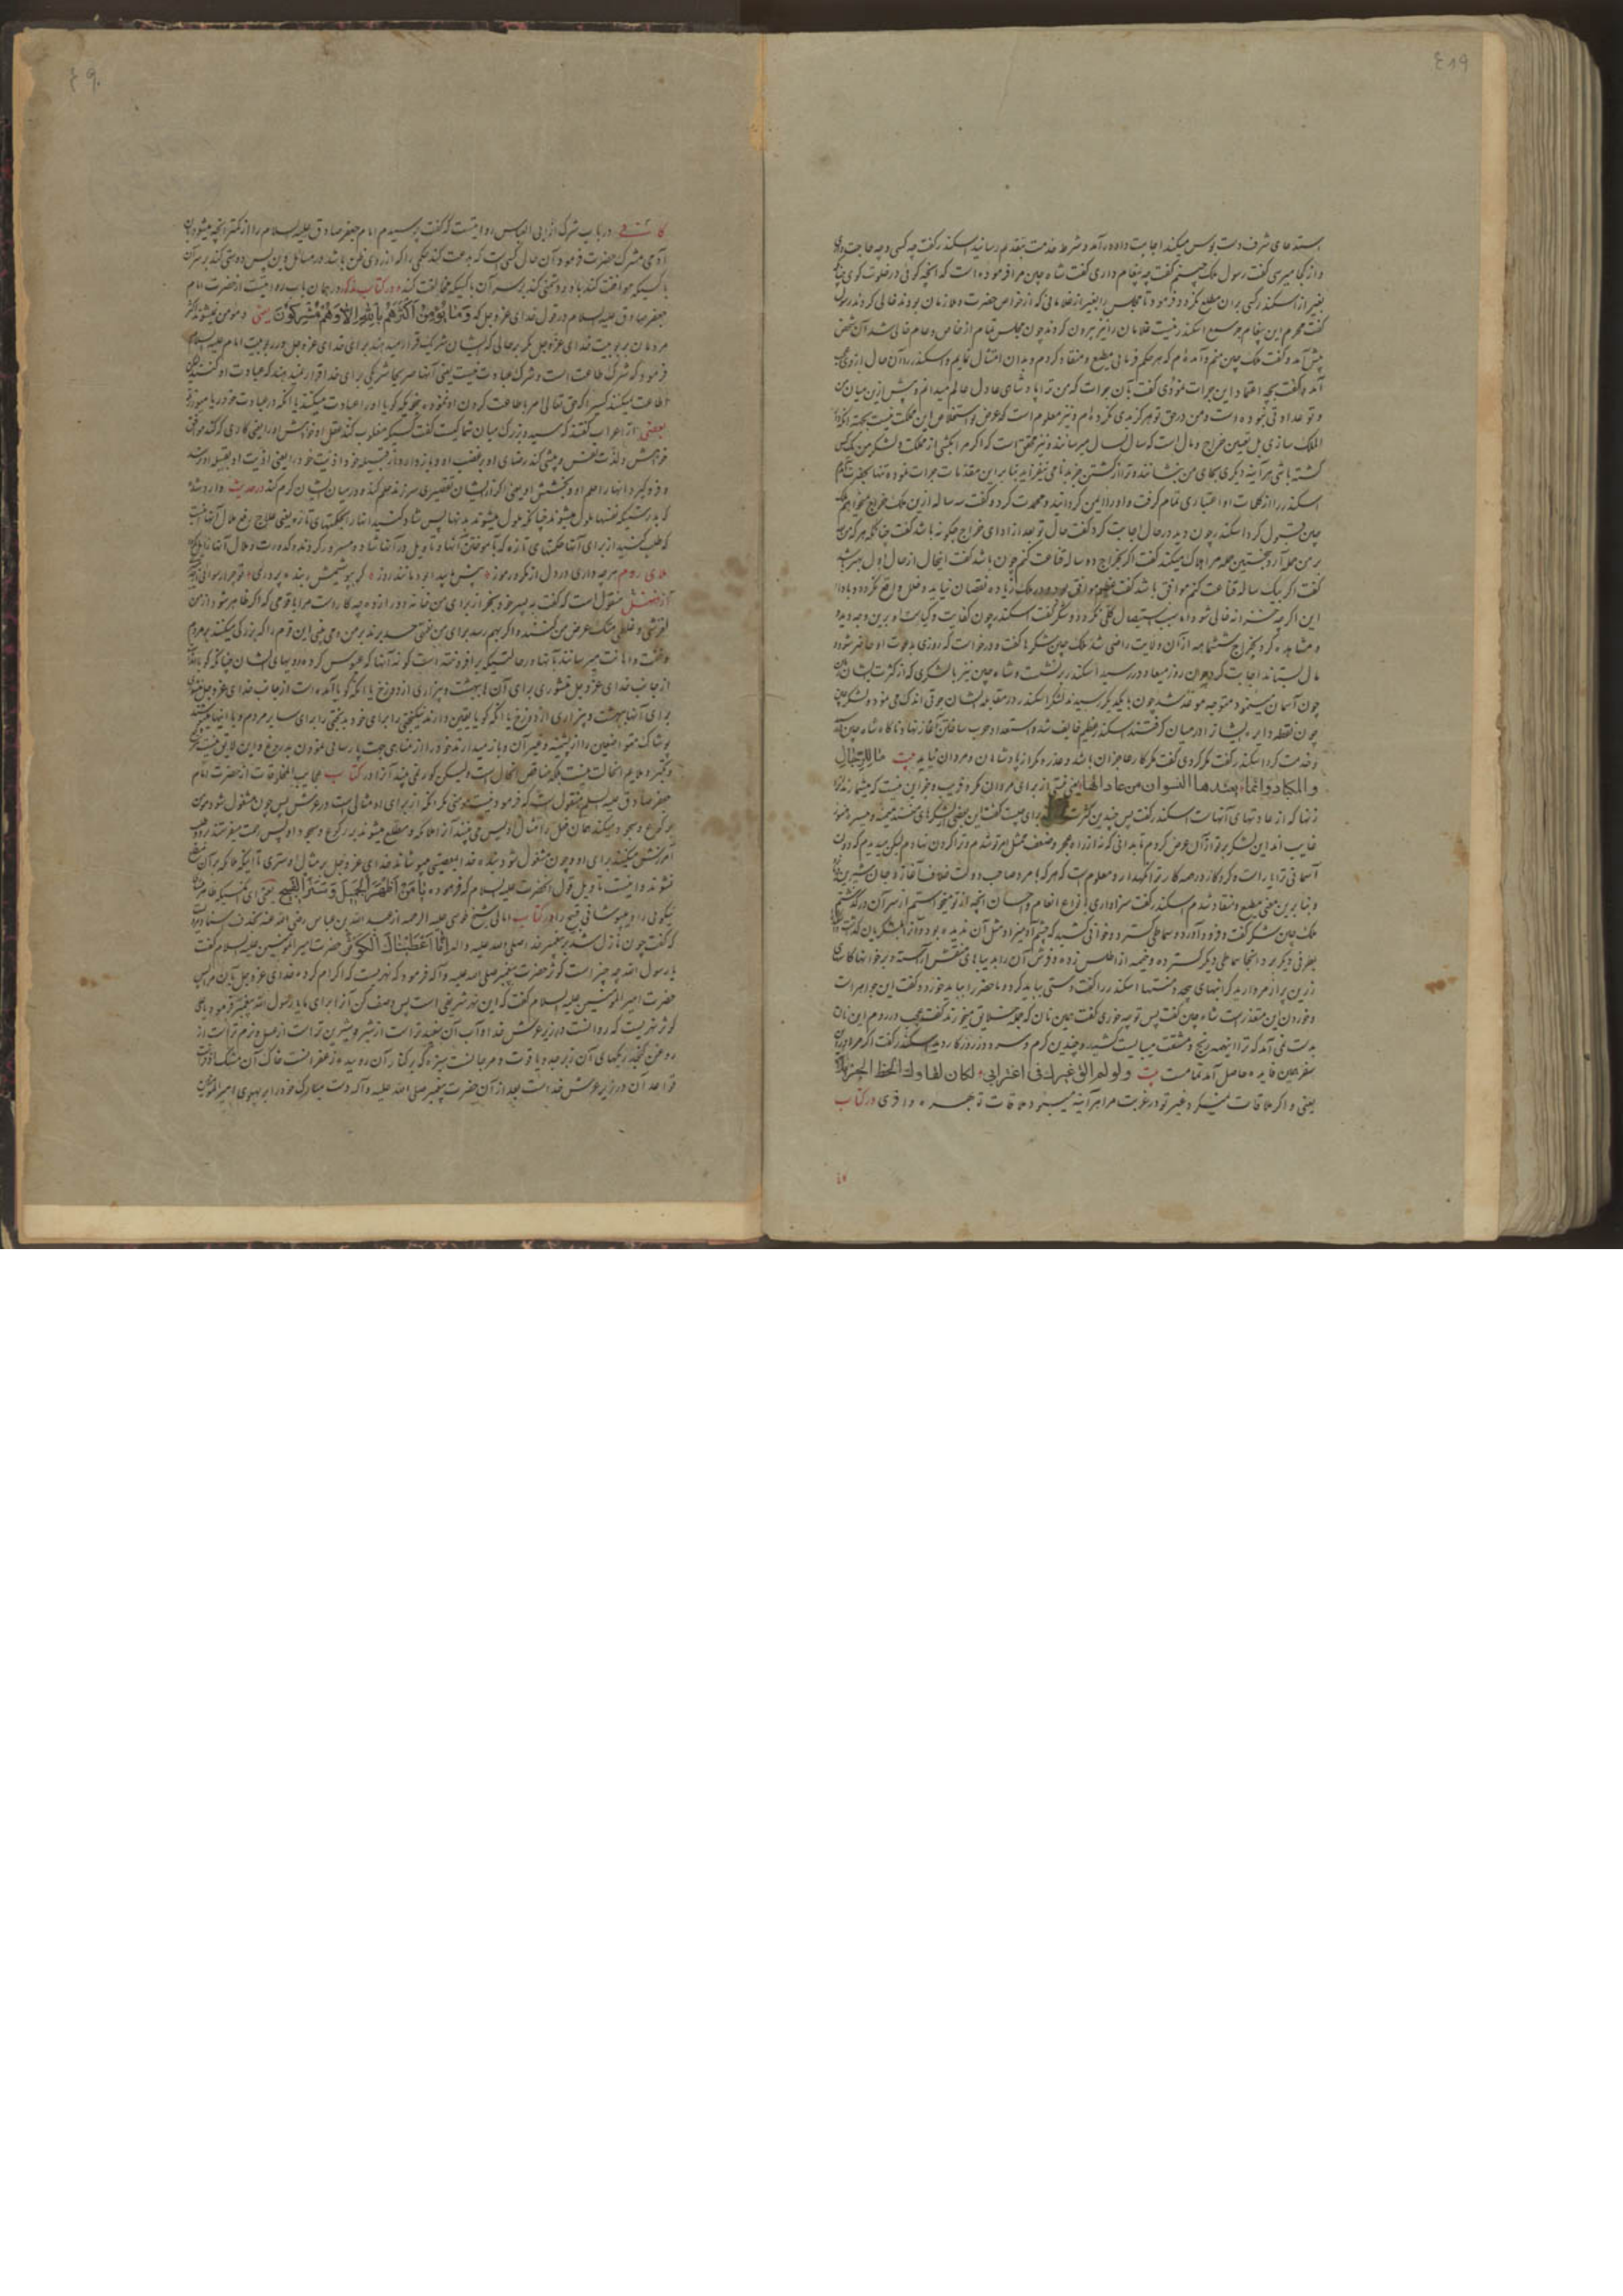 ٤٨٩
استدعای شرف دست بوس میکند اجابت داده درآمد و شرط خدمت بتقدیم رسانید اسکندر گفت چه کسی و چه حاجت داری
و از کجا میرسی گفت رسول ملک چینم گفت چه پیغام داری گفت شاه چین مرا فرموده است که آنچه گوئی در خلوت گوی
بغیر از اسکندر کسی بر آن مطلع نگردد فرمود تا مجلس را بغیر از غلامانی که از خواص حضرت و ملازمان بودند خالی کردند رسول
گفت محرم این پیغام جز سمع اسکندر نیست غلامان را نیز بیرون کردند چون مجلس تمام از خاص و عام خالی شد آن شخص
پیش آمد و گفت ملک چین منم آمده‌ام که هر حکم فرمائی مطیع و منقاد کردم و بدان امتثال نمایم اسکندر را آن حال از وی عجب
آمد و گفت بچه اعتماد این جرات نمودی گفت بآن جرات که من ترا پادشاهی عادل عالم میدانم و پیش ازین میان من
و تو عداوتی نبوده است و من در حق تو هرگز بدی نکرده‌ام و نیز معلوم است که غرض تو استخلاص این مملکت نیست
الملک سازی بل تعیین خراج و مال است که سال بسال میرسانند و نیز محقق است که اگر مرا بکشی از مملکت و لشکر من یک کس
کشته باشی هر آینه دیگری بجای من بنشانند و ترا از کشتن جز بدنامی نیفزاید بنا بر این مقدمات جرات نموده تنها بحضرت آمدم
اسکندر را از کلمات او اعتباری تمام گرفت و او را ایمن گردانید و محمدت کرد و گفت سه ساله ازین ملک خراج میخواهم ملک
چین قبول کرد اسکندر چون دید در حال اجابت کرد گفت حال تو بعد از ادای خراج چگونه باشد گفت چنانکه هر که
بر من حمله آرد بنخستین حمله مرا هلاک میکند گفت اگر بخراج دو ساله قناعت کنم چون باشد گفت این حال از حال اول بهتر باشد
گفت اگر بیک ساله قناعت کنم موافق باشد گفت
این اگر چه خزانه خالی شود اما سبب استیصال کلی نگردد و شکر گفت اسکندر چون کفایت و کیاست او برین وجه دید
و مشاهده کرد بخراج ششماهه از آن ولایت راضی شد ملک چین شکرها گفت و درخواست که روزی بدعوت او حاضر شود و
مال بستاند اجابت کرد چون روز میعاد در رسید اسکندر بر نشست و شاه چین نیز با لشکری که از کثرت ایشان
چون آسمان مینمود متوجه موعد شد چون بیکدیگر رسیدند لشکر اسکندر در مقابله ایشان جوقی اندک می نمود و لشکر چین
چون نقطه دایره ایشان را در میان گرفتند اسکندر عظیم خایف شد و استعداد حرب ساختن آغاز نهاد ناگاه شاه چین آمد
و خدمت کرد اسکندر گفت مکر کردی گفت مکر کار عاجزان باشد و غدر و مکر از پادشاهان و مردان نیاید بیت ما للرجال
و المکاید و انما یعتدها النسوان من عاداتها یعنی نیست از برای مردان مکر و فریب و جز این نیست که میشمارند
زنها که از عادتهای آنهاست اسکندر گفت پس چندین کثرت برای چیست گفت این بعضی لشکرهای منست میمنه و میسره هنوز
غایب اند این لشکر بر تو از آن عرض کردم تا بدانی که نه از راه عجز و ضعف ممتثل امر تو شدم و ترا گردن نهادم لیکن دیدم که دولت
آسمانی ترا یار است و کردگار در همه کار ترا نگهدار و معلوم است که هر که با مرد صاحب دولت خلاف آغازد و جان شیرین
و بنا برین معنی مطیع و منقاد شدم اسکندر گفت سزاواری بانواع انعام و احسان آنچه از تو میخواستم از سر آن درگذشتم
ملک چین شکر گفت و فرود آورد و سماطی گسترد و خوانی کشید که چشم آدمیزاد مثل آن ندیده بود و آنرا بلشکریان گذاشت
بطرفی دیگر برد آنجا سماطی دیگر گسترده و خیمه از اطلس زده و فرش آن را بدیباهای منقش آراسته و بر خوانها کاسهای
زرین پر از مروارید گرانبهای چیده و نشسته اسکندر را گفت دستی بباید کرد و ماحضر را بباید خورد گفت این جواهر است
و خوردن این متعذر است شاه چین گفت پس تو چه خوری گفت همین نان که همه خلایق میخورند گفت عجب در روم این نان
بدست نمی آمد که ترا اینهمه رنج و مشقت میبایست کشید و چندین گرم و سرد روزگار دید اسکندر گفت اگر مرا درین
سفر همین فایده حاصل آمد تمامست بیت ولو لم الق غیرک فی اغترابی لکان لقاؤک الحظ الجزیلا
یعنی و اگر ملاقات نمیکردم غیر تو در غربت مرا هر آینه میبود ملاقات تو بهره وافری در کتاب
٤٩٠
کافی در باب شرک از ابی العباس روایتست که گفت پرسیدم امام جعفر صادق علیه السلام را از کمتر آنچه میشود بآن
آدمی مشرک حضرت فرمود آن حال کسی است که بدعت کند حکمی را که از روی ظن باشد در مسائل دین پس دوستی کند بر سر آن
با کسیکه موافقت کند با او و دشمنی کند بر سر آن با کسیکه مخالفت کند و در کتاب مذکور در همان باب روایتست از حضرت امام
جعفر صادق علیه السلام در قول خدای عز و جل که وَمَا يُؤْمِنُ أَكْثَرُهُمْ بِاللَّهِ إِلَّا وَهُمْ مُشْرِكُونَ یعنی و مومن نمیشوند اکثر
مردمان بربوبیت خدای عز و جل مگر بر حالی که ایشان شریک قرار میدهند برای خدای عز و جل در ربوبیت امام علیه السلام
فرمود که شرک طاعت است و شرک عبادت نیست یعنی آنها صریحا شریکی برای خدا قرار نمیدهند که عبادت او کنند
اطاعت میکنند کسیرا که حق تعالی امر باطاعت کردن او ننموده بنحویکه گویا او را عبادت میکنند یا آنکه در عبادت خود ریا میورزند
بعضی از اعراب گفتند که سید و بزرگ میان شما کیست گفت کسیکه مغلوب کند عقل او خواهش او را یعنی کاری که کند موافق
خواهش و لذت نفس و پیشی کند رضای او بر غضب او و باز دارد از قبیله خود اذیت خود را یعنی اذیت او بقبیله او نرسد
و فرو گیرد آنها را حلم او و بخشش او یعنی اگر از ایشان تقصیری سرزند حلم کند و در میان ایشان کرم کند در حدیث وارد شده
که بدرستیکه نفسها ملول میشوند چنانکه ملول میشوند بدنها پس شاد کنید آنها را بحکمتهای تازه یعنی علاج رفع ملال آنها اینست
که طلب کنید از برای آنها حکمتهای تازه که تا موختن آنها و تاویل در آنها شاد و مسرور گردند و کدورت و ملال آنها زایل گردد
ملای روم هر چه داری در دل از مکر و رموز پیش ما پیدا بود مانند روز گر بپوشیمش ز بنده پروری تو چرا رسوائی
از فضل منقول است که گفت به پسر خود بخر از برای من خانه و دور از ده چه کار است مرا با قومی که اگر ظاهر شود از من
لغزشی و غلطی هتک عرض من کنند و اگر بهم رسد برای من نعمتی حسد برند بر من و می بینی این قوم را که بزرگی میکنند بر مردم
از جانب خدای عز و جل منشوری برای آن ها ببهشت و بیزاری از دوزخ یا آنکه گویا آمده است از جانب خدای عز و جل منشوری
برای آنها ببهشت و بیزاری از دوزخ یا آنکه گویا یقین دارند نیکبختی را برای خود و بدبختی را برای سایر مردم و با اینها میپوشند
پوشاک متواضعین را از پشمینه و غیر آن و باز میدارند خود را از مناهی جهت پارسائی نمودن بدروغ و این لایق نیست
و تکبر و ملایم آنحالت نیست بلکه مناقض آنحال است ولیکن کوریی چند آنرا در کتاب عجایب المخلوقات از حضرت امام
جعفر صادق علیه السلام منقول است که فرمود نیست مومنی مگر آنکه از برای او مثالی است در عرش پس چون مشغول شود مومن
برکوع و سجود میکند همان فعل را مثال او پس می بینند آنرا ملائکه و مطلع میشوند بر رکوع و سجود او پس رحمت میفرستند و طلب
آمرزش میکنند برای او و چون مشغول شود بنده خدا بمعصیتی میپوشاند خدای عز و جل بر مثال او ستری تا آنکه ملائکه بر آن مطلع
نشوند و اینست تاویل قول آنحضرت علیه السلام که فرموده یا مَنْ أَظْهَرَ الْجَمِيلَ وَسَتَرَ الْقَبِيحَ یعنی ای کسیکه ظاهر میسازد
نیکوئی را و میپوشانی قبیح را در کتاب امالی شیخ طوسی علیه الرحمه از عبد الله بن عباس رضی الله عنه بحذف اسناد مرویست
که گفت چون نازل شد بر پیغمبر خدا صلی الله علیه و اله إِنَّا أَعْطَيْنَاكَ الْكَوْثَرَ حضرت امیر المومنین علیه السلام گفت
یا رسول الله چه چیز است کوثر حضرت پیغمبر صلی الله علیه و آله فرمود که نهریست که اکرام کرده خدای عز و جل بآن مرا پس
حضرت امیر المومنین علیه السلام گفت که این نهر شریفی است پس وصف کن آنرا برای ما یا رسول الله پیغمبر فرمود یا علی
کوثر نهریست که روانست در زیر عرش خدا و آب آن سفیدتر است از شیر و شیرین تر است از عسل و نرم تر است از
روغن سنگریزهای آن زبرجد و یاقوت و مرجانست سبزه که بر کنار آن روییده زعفرانست خاک آن مشک
قواعد آن در زیر عرش خداست بعد از آن حضرت پیغمبر صلی الله علیه و آله دست مبارک خود را بر پهلوی امیر المومنین